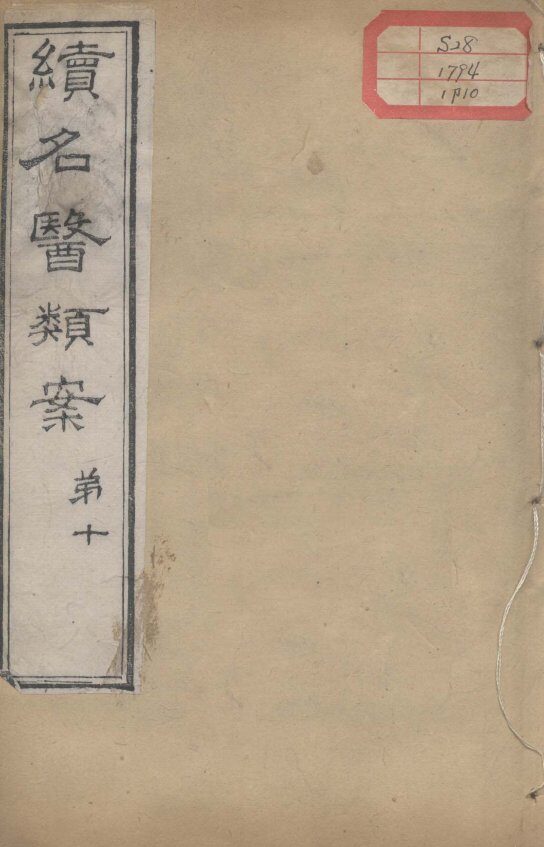 續名醫類案
第十
528
1794
1β10